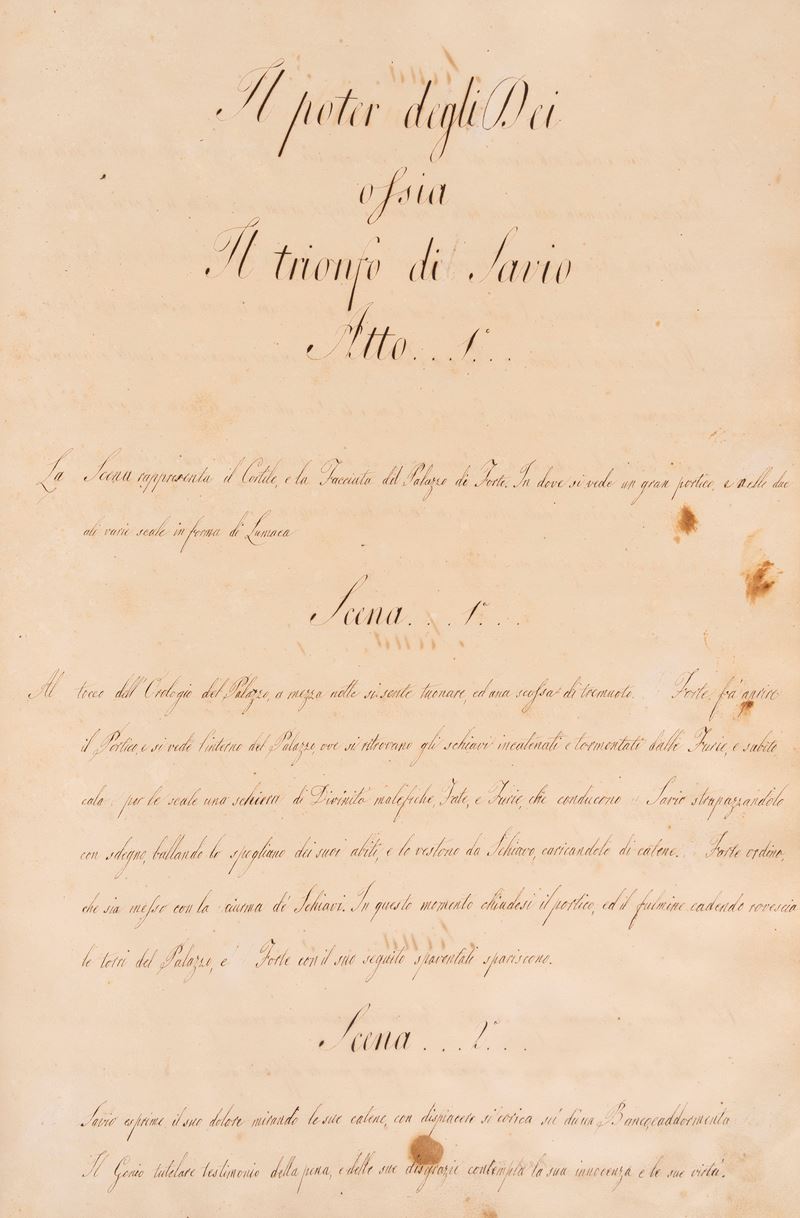 Il poter degli Dei
ossia
Il trionfo di Savio
Atto. . . 1.º . .
La Scena rappresenta il Cortile, e la Facciata del Palazzo di Forte. In dove si vede un gran portico, e nelle due
ali varie scale in forma di Lumaca
Scena. . . 1.ª . .
Al tocco dell'Orologio del Palazzo, a mezza notte si sente tuonare, ed una scossa di tremuoto. Forte, fà aprire
il Portico, e si vede l'interno del Palazzo, ove si ritrovano gli schiavi incatenati e tormentati dalle Furie, e subito
cala per le scale una schiera di Divinità malefiche, Fate, e Furie, che conducono Savio strapazzandolo
con sdegno, ballando lo spogliano dei suoi abiti, e lo vestono da Schiavo, caricandolo di catene. Forte ordina,
che sia messo con la ciurma de' Schiavi. In questo momento chiudesi il portico, ed il fulmine cadendo rovescia
le torri del Palazzo, e Forte con il suo seguito spaventati spariscono.
Scena . . . 2.ª . .
Savio esprime il suo dolore mirando le sue catene, con dispiacere si corica su' di un Banco, e addormenta
Il Genio tutelare testimonio della pena, e delle sue disgrazie contempla la sua innocenza e le sue virtù.